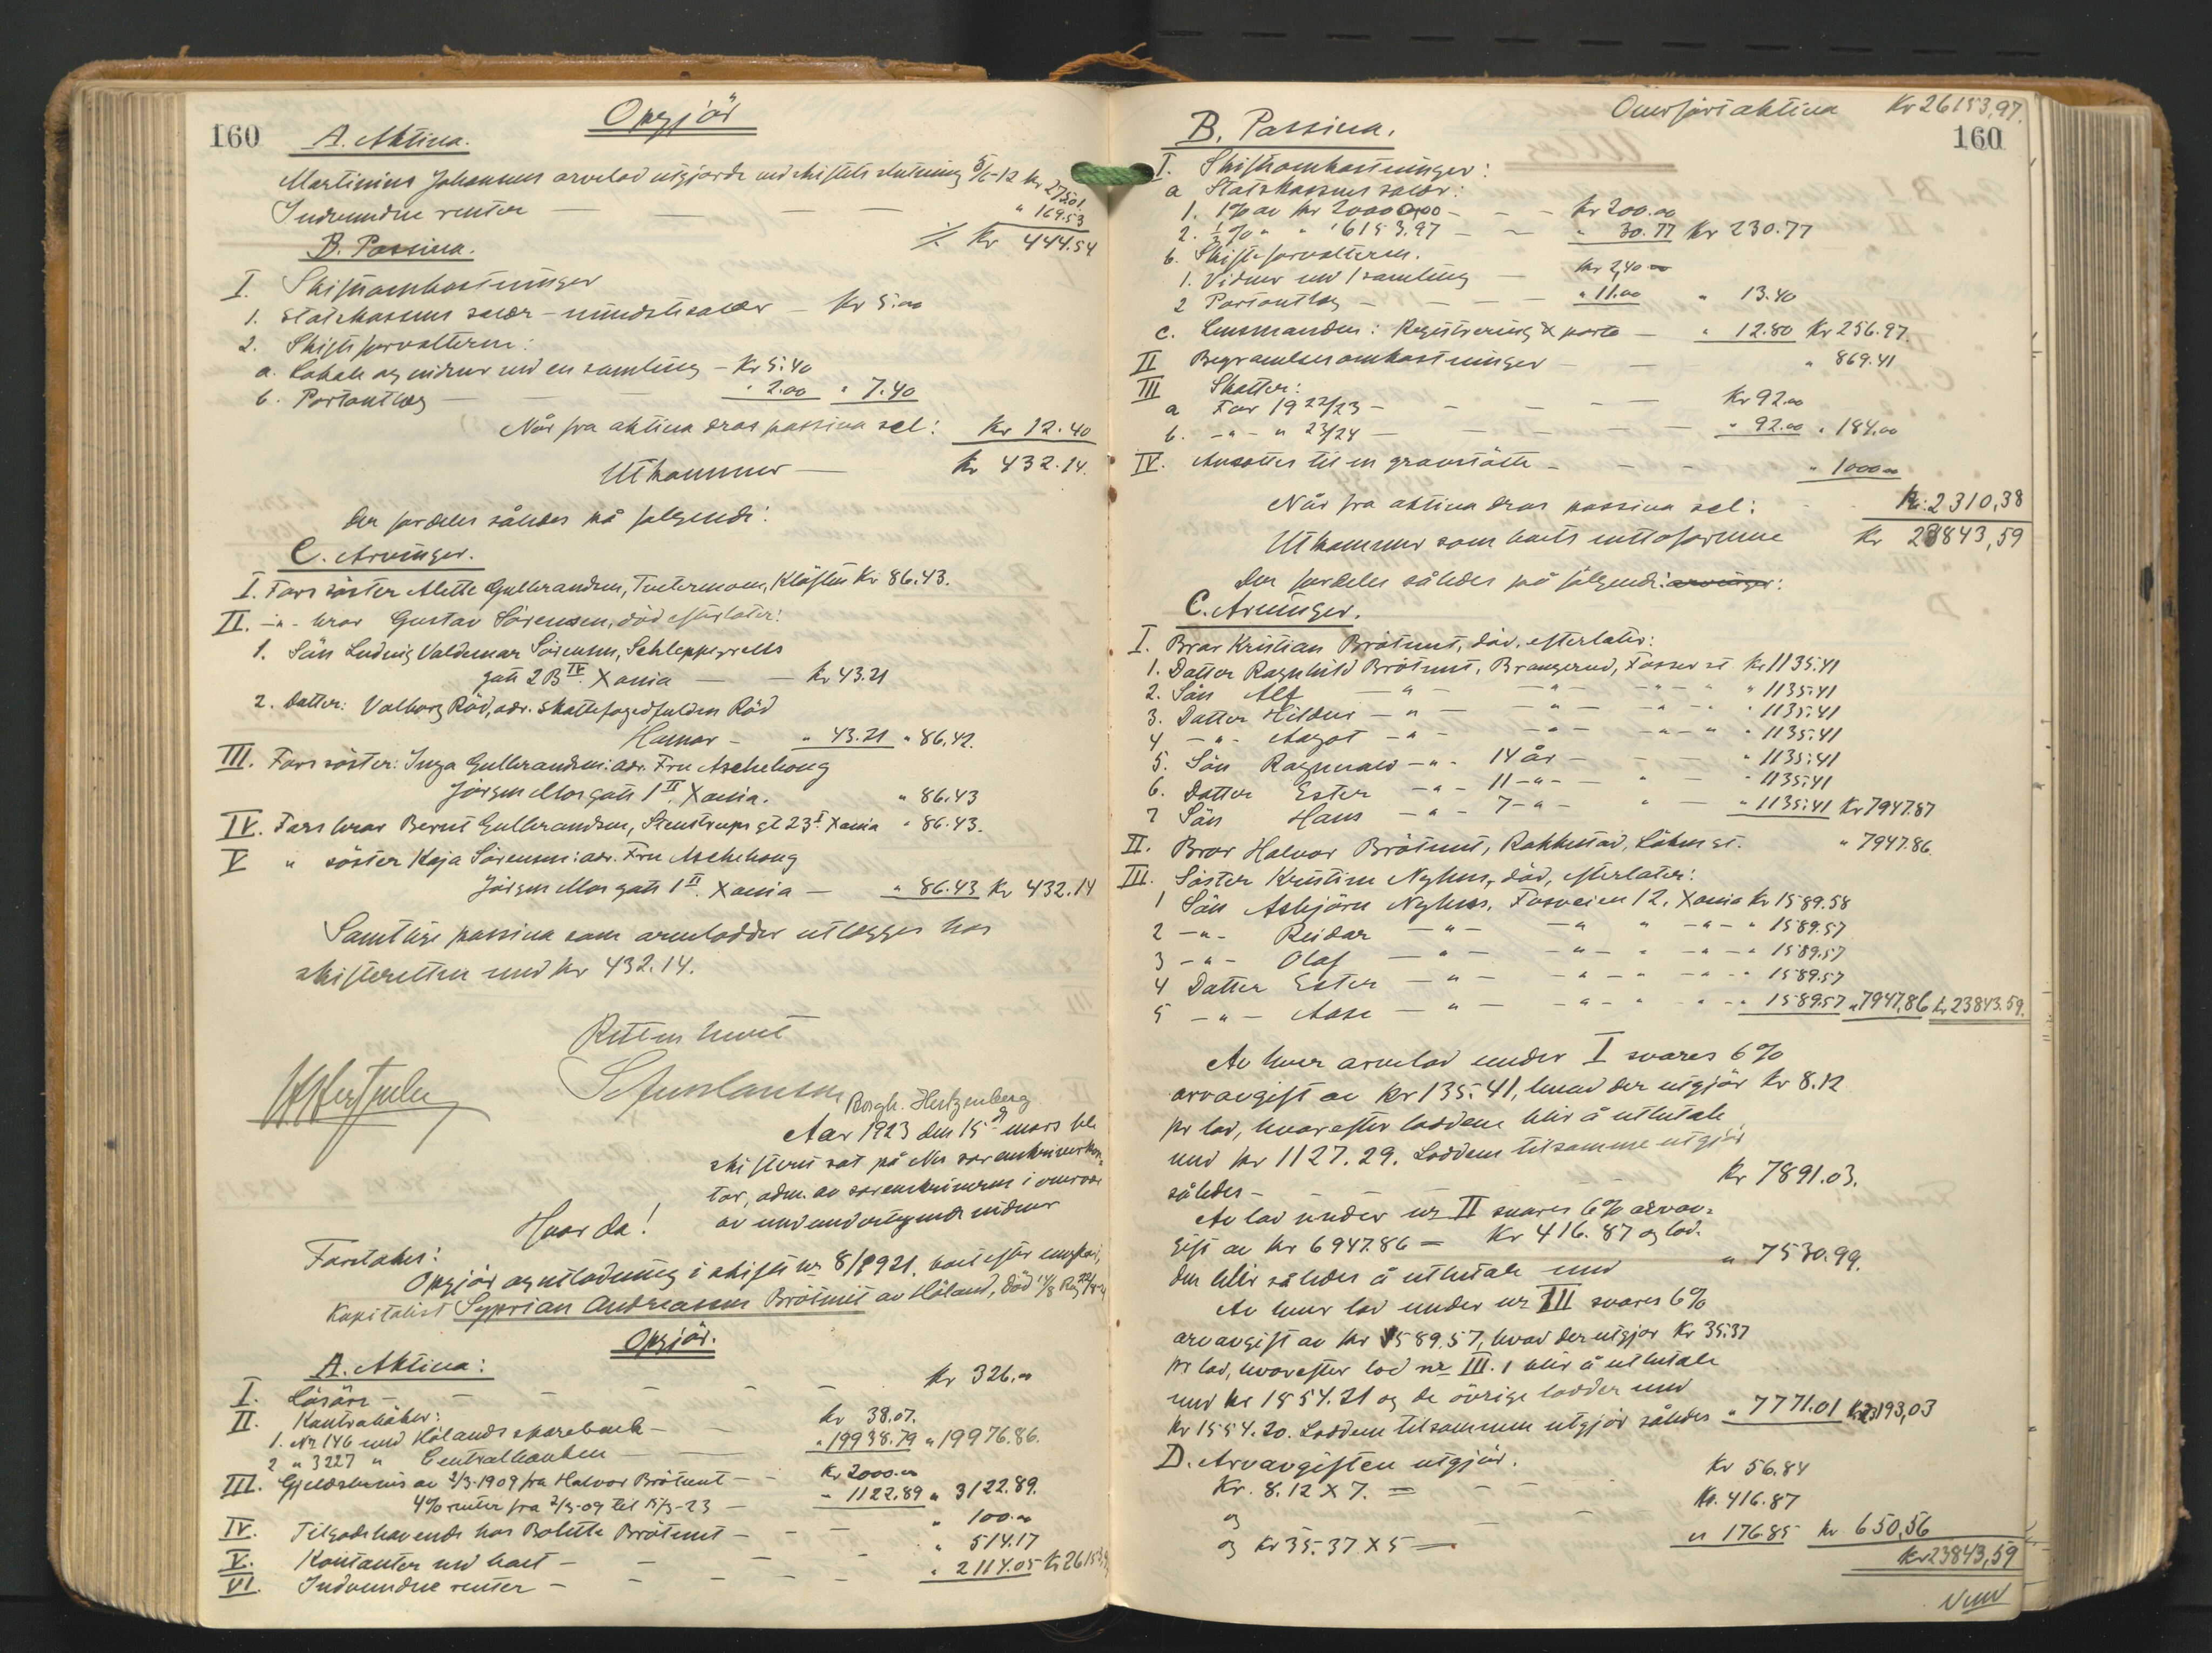 160
Opgjör
A. Aktiva.
Martinius Johansens arvelod utgjorde ved skiftets slutning 5/6-12 kr 275.01
Indvundne renter — — — — " 169.53
B. Passiva. ⁒ Kr 444.54
I. Skifteomkostninger
1. Statskassens salær - mindstesalær — Kr 5.00
2. Skifteforvalteren:
a. Lokale og vidner ved en samling - Kr 5.40
b. Portoutlæg — — " 2.00 " 7.40
Når fra aktiva dras passiva sel: Kr 12.40
Utkommer — Kr 432.14.
der fordeles således på følgende:
C. Arvinger.
I. Fars söster Alette Gulbrandsen, Kløften Kr 86.43.
II. -"- bror Gustav Sörensen, död efterlater:
1. Sön Ludvig Valdemar Sörensen, Schleppegrells
gate 2B IV Xania — — Kr 43.21
2. Datter: Valborg Röd, adr. skattefogedfuldm Röd
Hamar - " 43.21 " 86,42.
III. Fars söster: Inga Gulbrandsen: adr. Fru Aschehoug
Jörgen Moes gate 1 II Xania. " 86.43
IV. Fars bror Bernt Gulbrandsen, Stenstrups gt 23 I Xania " 86.43.
V " söster Kaja Sörensen: adr. Fru Aschehoug
Jörgen Moes gate 1 II Xania — " 86.43 Kr 432.14
Samtlige passiva som arvelodder utlægges hos
skifteretten med kr 432.14.
Retten hævet
Borgh. Hertzenberg
Aar 1923 den 15de mars ble
skifteret sat på Nes sorenskriverkon-
tor, adm. av sorenskriveren i overvær
av medundertegnede vidner
Hvor da!
Foretokes:
Opgjör og utlodning i skifte nr 8/1921. boet efter ungkar,
Kapitalist Syprian Andreassen Brötmet av Höland, död 14/8
Opgjör.
A. Aktiva:
I. Lösöre — — — — — Kr 326.00
II. Kontraböker:
1. Nr 146 med Hölands sparebank — — Kr 38.07.
2 " 3227 " Centralbanken — " 19938.79 " 19976.86.
III. Gjeldsbrevs av 2/3-1909 fra Halvor Brötmet — - Kr 2000.00
4% renter fra 2/3-09 til 15/3-23 — " 1122.89 " 3122.89.
IV. Tilgodehavende hos Bolette Brötmet — - — " 100.00
V. Kontanter ved boet — — — — " 514.17
VI. Indvundne renter — — — — — " 2114.05 Kr 26153,97
Overført aktiva Kr 26153,97.
160
B. Passiva.
I. Skifteomkostninger:
a Statskassens salær:
1. 1% av kr 20000,00 - - - Kr 200.00
2. ½% " " 6153.97 — — " 30.77 Kr 230.77
b. Skifteforvalteren.
1. Vidner ved 1 samling — Kr 2,40
2 Portoutlæg — — — — " 11.00 " 13.40
c. Lensmanden: Registrering & porto — " 12.80 Kr 256.97.
II Begravelsesomkostninger — — — " 869.41
III Skatter:
a For 1922/23 — — — — — Kr 92.00
b. -"- " 23/24 — — — — — " 92.00 " 184.00
IV. Avsættes til en gravstötte — — — " 1000.00
Når fra aktiva dras passiva sel: Kr. 2310,38
Utkommer som boets nettoformue Kr 23843,59
Der fordeles således på fölgende: arvinger:
C. Arvinger.
I. Bror Kristian Brötmet, död, efterlater:
1. Datter Ragnhild Brötmet, Brangerud, Fosser st Kr 1135.41
2. Sön Alf — " — — " — - " - " " 1135.41
3. Datter Hildur — " — — " — - " - " 1135.41
4 -"- Aagot — " - — " — - " - " " 1135.41
5. Sön Ragnvald — " - 14 år — — — " 1135.41
6. Datter Ester — " - 11 - " - — " — " 1135.41
7 Sön Hans — " - 7 - " - " — " 1135.41 Kr 7947.87
II. Bror Halvor Brötmet, Rakkestad, st. " 7947.86.
III. Söster Kristine Nyhus, död, efterlater:
1 Sön Asbjörn Nyhus, Fosveien 12, Xania Kr 1589.58
2 -"- Reidar — " — — " " - " - " 1589.57
3 -"- Olaf — " — - " - " - " - " 1589.57
4 Datter Ester — " — - " - " - " - " 1589.57
5 -"- Aase — " — - " - " " - " 1589.57 " 7947,86 kr 23843.59.
Av hver arvelod under I svares 6%
arveavgift av kr 135.41, hvad der utgjör kr 8.12
pr lod, hvorefter loddene blir å utbetale
med kr 1127.29. Loddene tilsammen utgjör
således — — — — Kr 7891.03.
Av lod under nr II svares 6% arveav-
gift av kr 6947.86 = Kr 416.87 og lod-
den blir således å utbetale med — " 7530.99.
Av hver lod under nr III svares 6%
arvavgift av kr 589.57, hvad der utgjör Kr 35.37
pr lod, hvorefter lod nr III.1 blir å utbetale
med kr 1554.21 og de övrige lodder med
Kr 1554.20. Loddene tilsammen utgjör således " 7771.01 Kr 23193,03
D. Arvavgiften utgjör.
Kr. 8.12 x 7. = — — Kr 56.84
og — — — Kr. 416.87
og Kr 35.37 x 5 = " 176.85 Kr 650,56
Kr 23843,59